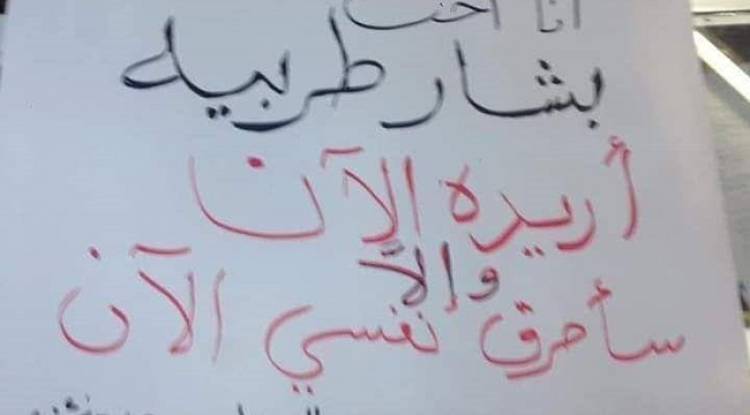 أنا أخت
بشار طربيه
أريده الآن
وإلا
سأحرق نفسي الآن